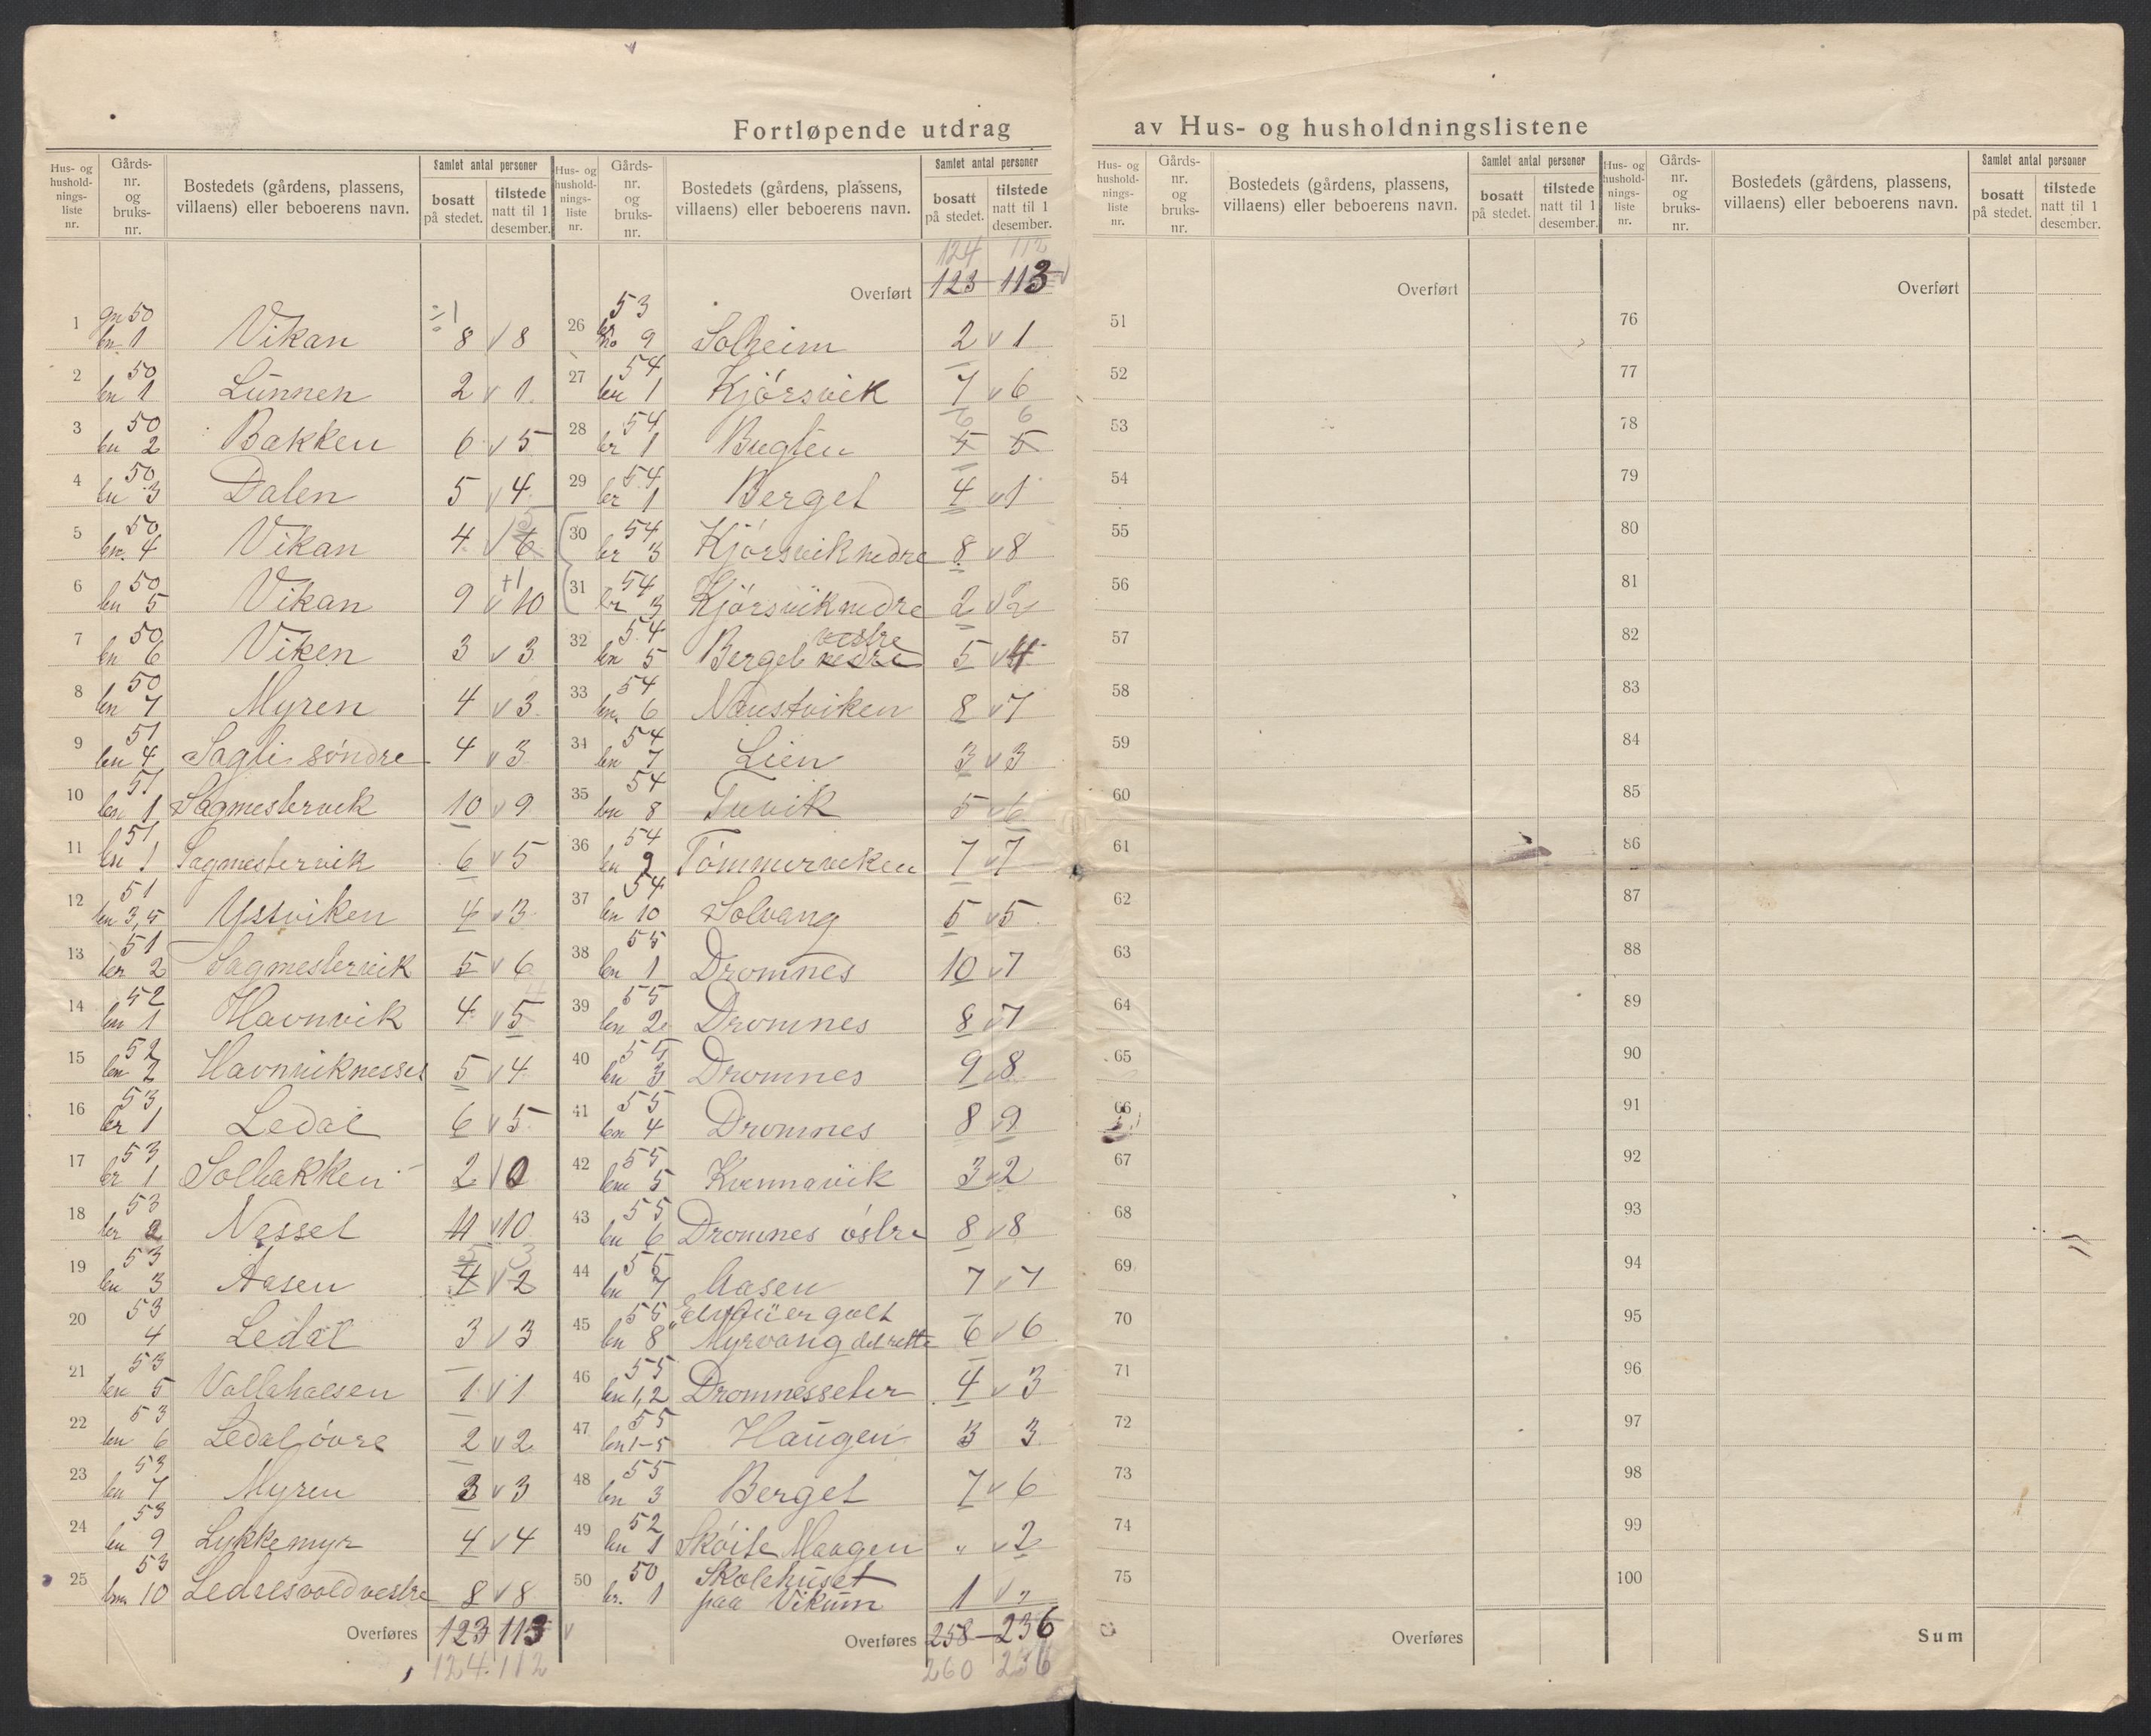 Fortløpende utdrag av Hus- og husholdningslistene
Hus- og husholdningsliste nr. | Gårds-nr. og bruks-nr. | Bostedets (gårdens, plassens, villaens) eller beboerens navn. | Samlet antal personer | bosatt på stedet. | tilstede natt til 1 desember.
1 gn 50 bn 1 Vikan ÷1 8 v 8
2 50 bn 1 Lunnen 2 v 1
3 50 bn 2 Bakken 6 v 5
4 50 bn 3 Dalen 5 v 4
5 50 bn. 4 Vikan 4 v 6 5
6 50 bn 5 Vikan 9 v +1 10
7 50 bn 6 Viken 3 v 3
8 50 bn 7 Myren 4 v 3
9 51 bn 4 Sagli søndre 4 v 3
10 51 bn 1 Sagmestervik 10 v 9
11 51 bn 1 Sagmestervik 6 v 5
12 51 bn 3,5 Ystviken 4 v 3
13 51 br 2 Sagmestervik 5 v 6
14 52 bn 1 Havnvik 4 v 5
15 52 bn 2 Havnviknesset 5 v 4
16 53 br 1 Ledal 6 v 5
17 53 br 1 Solbakken 2 v 0
18 53 br 2 Nesset 11 v 10
19 53 bn 3 Aasen 5 3 4 v 2
20 53 4 Ledal 3 v 3
21 53 bn 5 Vollahalsen 1 v 1
22 53 bn 6 Ledal øvre 2 v 2
23 53 bn 7 Myren 3 v 3
24 53 bn 9 Lykkemyr 4 v 4
25 53 bn 10 Ledalsvold vestre 8 v 8
Overføres 123 113 v
124. 112
124 112
Overført 123 113 v
26 53 br no 9 Solheim 2 v 1
27 54 bn 1 Kjørsvik 7 v 6
28 54 br 1 Bugten 6 6 5 5
29 54 br 1 Berget 4 v 1
30 54 br 3 Kjørsvik nedre 8 v 8
31 54 br 3 Kjørsvik nedre 2 v 2
32 54 bn 5 Berget vestre nedre 5 v 4
33 54 bn. 6 Naustviken 8 v 7
34 54 bn 7 Lien 3 v 3
35 54 bn 8 Tuvik 5 v 6
36 54 bn 9 Tømmerviken 7 v 7
37 54 bn 10 Solvang 5 v 5
38 55 bn 1 Dromnes 10 v 7
39 55 bn 2 Dromnes 8 v 7
40 55 bn 3 Dromnes 9 v 8
41 55 bn 4 Dromnes 8 v 9
42 55 bn 5 Kvennavik 3 v 2
43 55 bn 6 Dromnes østre 8 v 8
44 55 bn 7 Aasen 7 v 7
45 55 er galt
bn 8 Myrvang det rette 6 v 6
46 55 bn 1,2 Dromnesseter 4 v 3
47 55 bn 1-5 Haugen 3 3
48 55 bn 3 Berget 7 v 6
49 52 bn 1 Skøite Maagen " v 2
50 50 br. 1 Skolehuset
paa Vikum 1 v "
Overføres 258 — 236
260 236
Hus- og husholdningsliste nr. | Gårds-nr. og bruks-nr. | Bostedets (gårdens, plassens, villaens) eller beboerens navn. | Samlet antal personer | bosatt på stedet. | tilstede natt til 1 desember.
Overført
51
52
53
54
55
56
57
58
59
60
61
62
63
64
65
66
67
68
69
70
71
72
73
74
75
Overføres
Overført
76
77
78
79
80
81
82
83
84
85
86
87
88
89
90
91
92
93
94
95
96
97
98
99
100
Sum